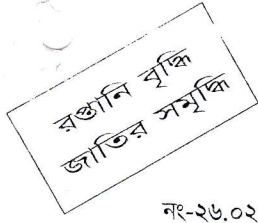 রপ্তানি বৃদ্ধি
জাতির সমৃদ্ধি
নং-২৬.০২